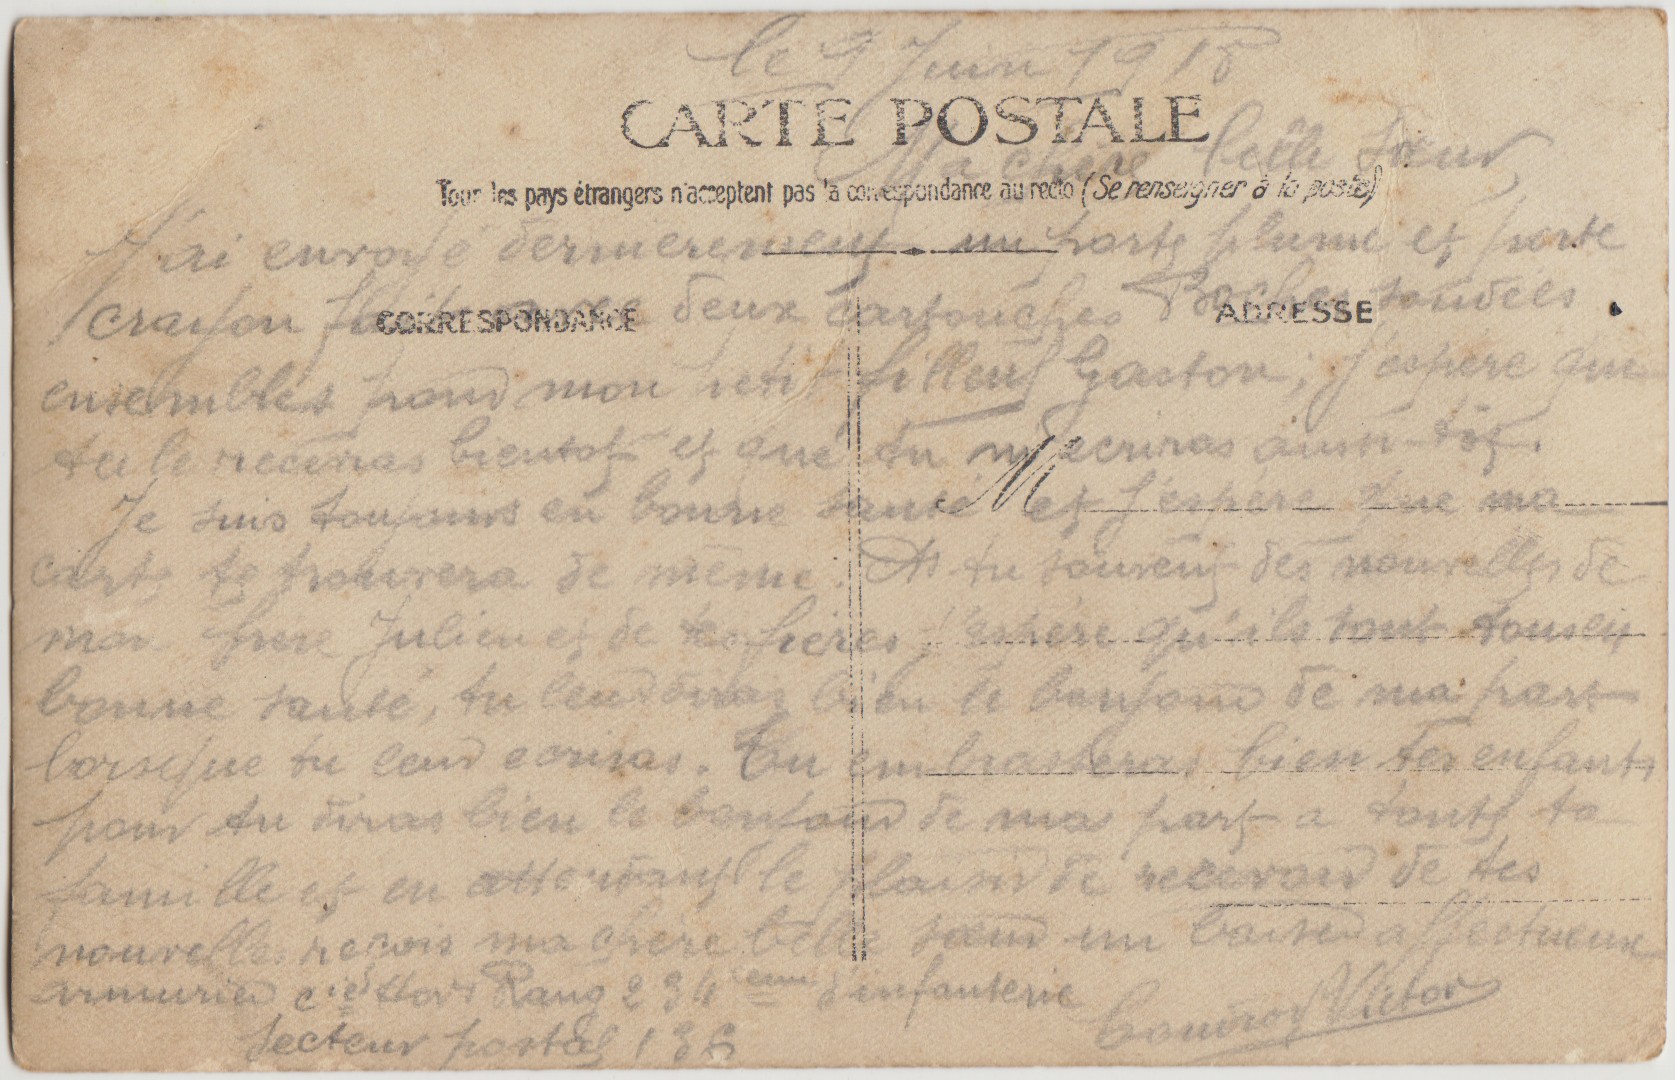 le 9 Juin 1915
CARTE POSTALE
Ma chère belle Sœur,
Tous les pays étrangers n'acceptent pas la correspondance au recto (Se renseigner à la poste)
J'ai envoyé dernierement un porte plume et porte
crayon deux cartouches Boches soudées
CORRESPONDANCE
ADRESSE
ensembles pour mon petit filleul Gaston, j'espere que
tu le receveras bientot et que tu m'ecriras aussi tôt.
M
Je suis toujours en bonne santé et j'espère que ma
carte te trouvera de même. As tu souvent des nouvelles de
mon frère Julien et de tes frères j'espère qu'ils sont tous en
bonne santé, tu leur diras bien le bonjour de ma part
lorseque tu leur ecriras. Tu embrasseras bien tes enfants
pour tu diras bien le bonjour de ma part a toute ta
famille et en attendant le plaisir de recevoir de tes
nouvelles reçois ma chère belle sœur un baiser affectueux
armurier Cie Hors Rang 234 eme d'infanterie
Victor
Secteur postal